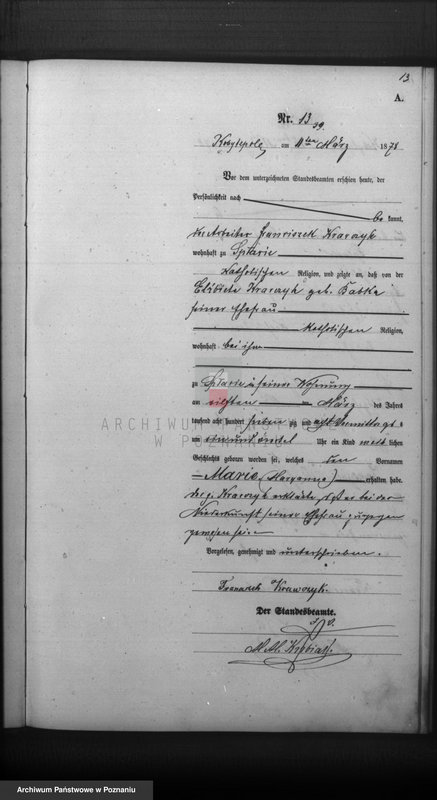 13
A.
Nr. 13
am 11ten März 1878
Vor dem unterzeichneten Standesbeamten erschien heute, der
Persönlichkeit nach
be kannt,
der Arbeiter Franciszek Krawczyk
wohnhaft zu
katholischen Religion, und zeigte an, daß von der
Krawczyk geb. Babka
seiner Ehefrau
katholischen Religion,
wohnhaft bei ihm
zu in seiner Wohnung
am elften März des Jahres
tausend acht hundert sieben zig und acht Vormittags
um ein und Uhr ein Kind weib lichen
Geschlechts geboren worden sei, welches den Vornamen
Marie (Maryanna) erhalten habe.
Krawczyk erklärte, daß er bei der
Niederkunft seiner Ehefrau zugegen
gewesen sei.
Vorgelesen, genehmigt und unterschrieben.
Krawczyk.
Der Standesbeamte.
ARCHIWUM PAŃSTWOWE
W POZNANIU
Archiwum Państwowe w Poznaniu